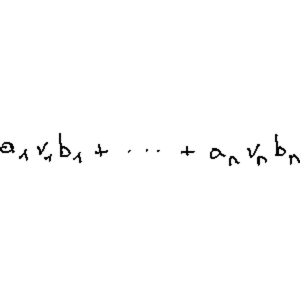 a₁v₁b₁ + ... + aₙvₙbₙ